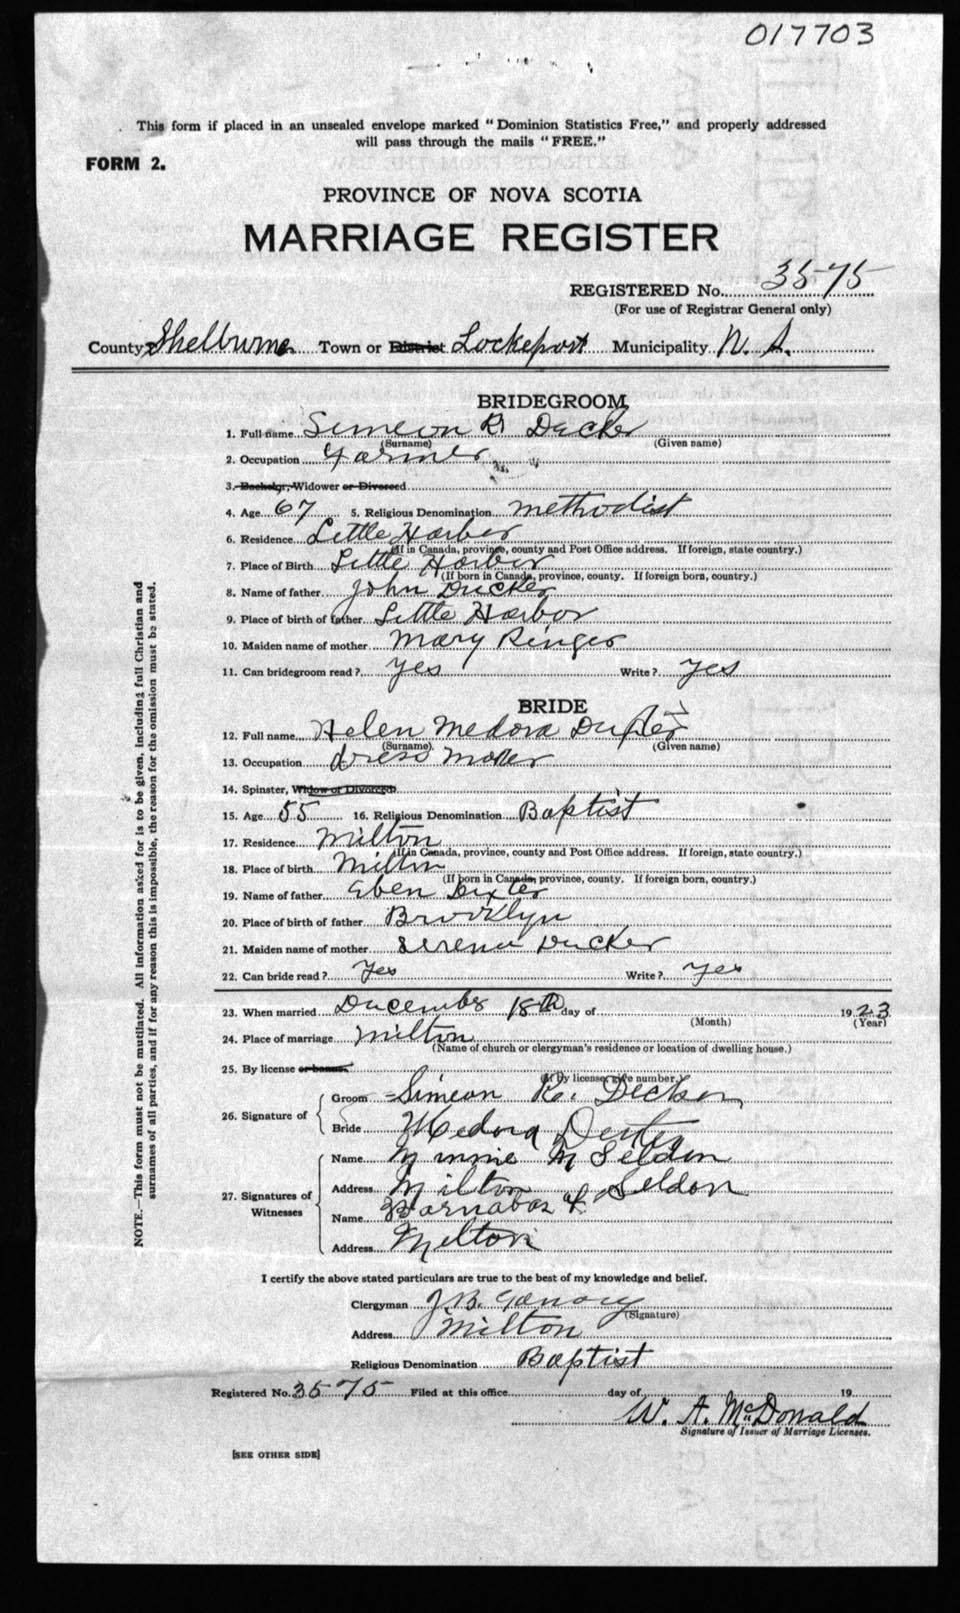 017703
This form if placed in an unsealed envelope marked "Dominion Statistics Free," and properly addressed
will pass through the mails "FREE."
FORM 2.
PROVINCE OF NOVA SCOTIA
MARRIAGE REGISTER
REGISTERED No. 3575
(For use of Registrar General only)
County Shelburne Town or District Lockeport Municipality N. S.
BRIDEGROOM
1. Full name Simeon R Decker
(Surname) (Given name)
2. Occupation Farmer
3. Bachelor, Widower or Divorced
4. Age 67 5. Religious Denomination Methodist
6. Residence Little Harbor
(If in Canada, province, county and Post Office address. If foreign, state country.)
7. Place of Birth Little Harbor
(If born in Canada, province, county. If foreign born, country.)
8. Name of father John Decker
9. Place of birth of father Little Harbor
10. Maiden name of mother Mary Ringer
11. Can bridegroom read? yes Write? yes
BRIDE
12. Full name Helen Medora Dexter
(Surname) (Given name)
13. Occupation dress maker
14. Spinster, Widow or Divorced
15. Age 55 16. Religious Denomination Baptist
17. Residence Milton
(If in Canada, province, county and Post Office address. If foreign, state country.)
18. Place of birth Milton
(If born in Canada, province, county. If foreign born, country.)
19. Name of father Eben Dexter
20. Place of birth of father Brooklyn
21. Maiden name of mother Serena Decker
22. Can bride read? Yes Write? yes
23. When married December 18th day of 1923
(Month) (Year)
24. Place of marriage Milton
(Name of church or clergyman's residence or location of dwelling house.)
25. By license or banns.
(If by license, give number.)
26. Signature of Groom Simeon R. Decker
Bride Medora Dexter
27. Signatures of Witnesses Name Minnie M Seldon
Address Milton
Name Barnabas L Seldon
Address Milton
I certify the above stated particulars are true to the best of my knowledge and belief.
Clergyman J.B. Ganong
(Signature)
Address Milton
Religious Denomination Baptist
Registered No. 3575 Filed at this office day of 19
W. A. McDonald
Signature of Issuer of Marriage Licenses.
[SEE OTHER SIDE]
NOTE.—This form must not be mutilated. All information asked for is to be given, including full Christian and
surnames of all parties, and if for any reason this is impossible, the reason for the omission must be stated.